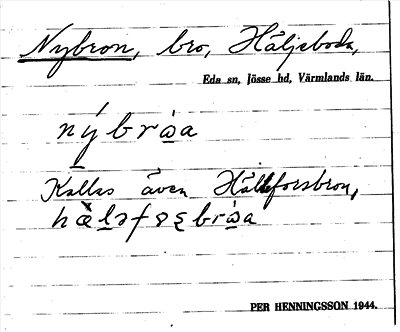 Nybron, bro, Häljeboda,
Eda sn, Jösse hd, Värmlands län.
Kallas även Hälleforsbron,
PER HENNINGSSON 1944.